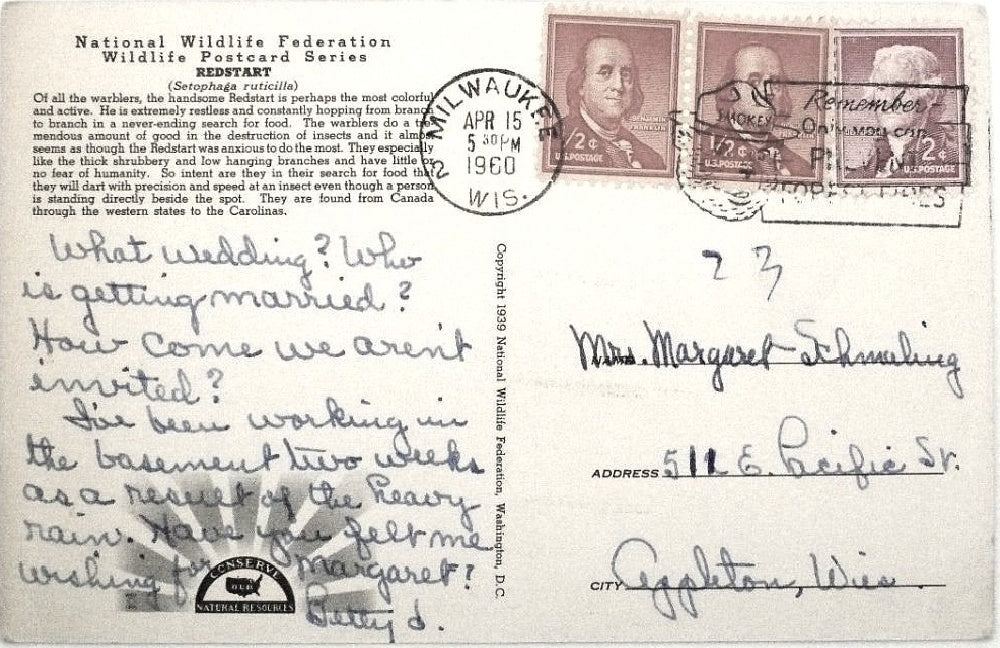 National Wildlife Federation
Wildlife Postcard Series
REDSTART
(Setophaga ruticilla)
Of all the warblers, the handsome Redstart is perhaps the most colorful
and active. He is extremely restless and constantly hopping from branch
to branch in a never-ending search for food. The warblers do a tre-
mendous amount of good in the destruction of insects and it almost
seems as though the Redstart was anxious to do the most. They especially
like the thick shrubbery and low hanging branches and have little or
no fear of humanity. So intent are they in their search for food that
they will dart with precision and speed at an insect even though a person
is standing directly beside the spot. They are found from Canada
through the western states to the Carolinas.
What wedding? Who
is getting married?
How come we aren't
invited?
I've been working in
the basement two weeks
as a result of the heavy
rain. Have you felt me
wishing for Margaret?
Betty J.
CONSERVE
OUR
NATURAL RESOURCES
Copyright 1939 National Wildlife Federation, Washington, D.C.
MILWAUKEE
2
APR 15
5 30 PM
1960
WIS.
BENJAMIN
FRANKLIN
1/2¢
U.S. POSTAGE
1/2¢
U.S. POSTAGE
2¢
U.S. POSTAGE
SMOKEY
Remember-
Only you can
PREVENT
FOREST FIRES
23
NAME Mrs. Margaret Schmaling
ADDRESS 511 E. Pacific St.
CITY Appleton, Wis.